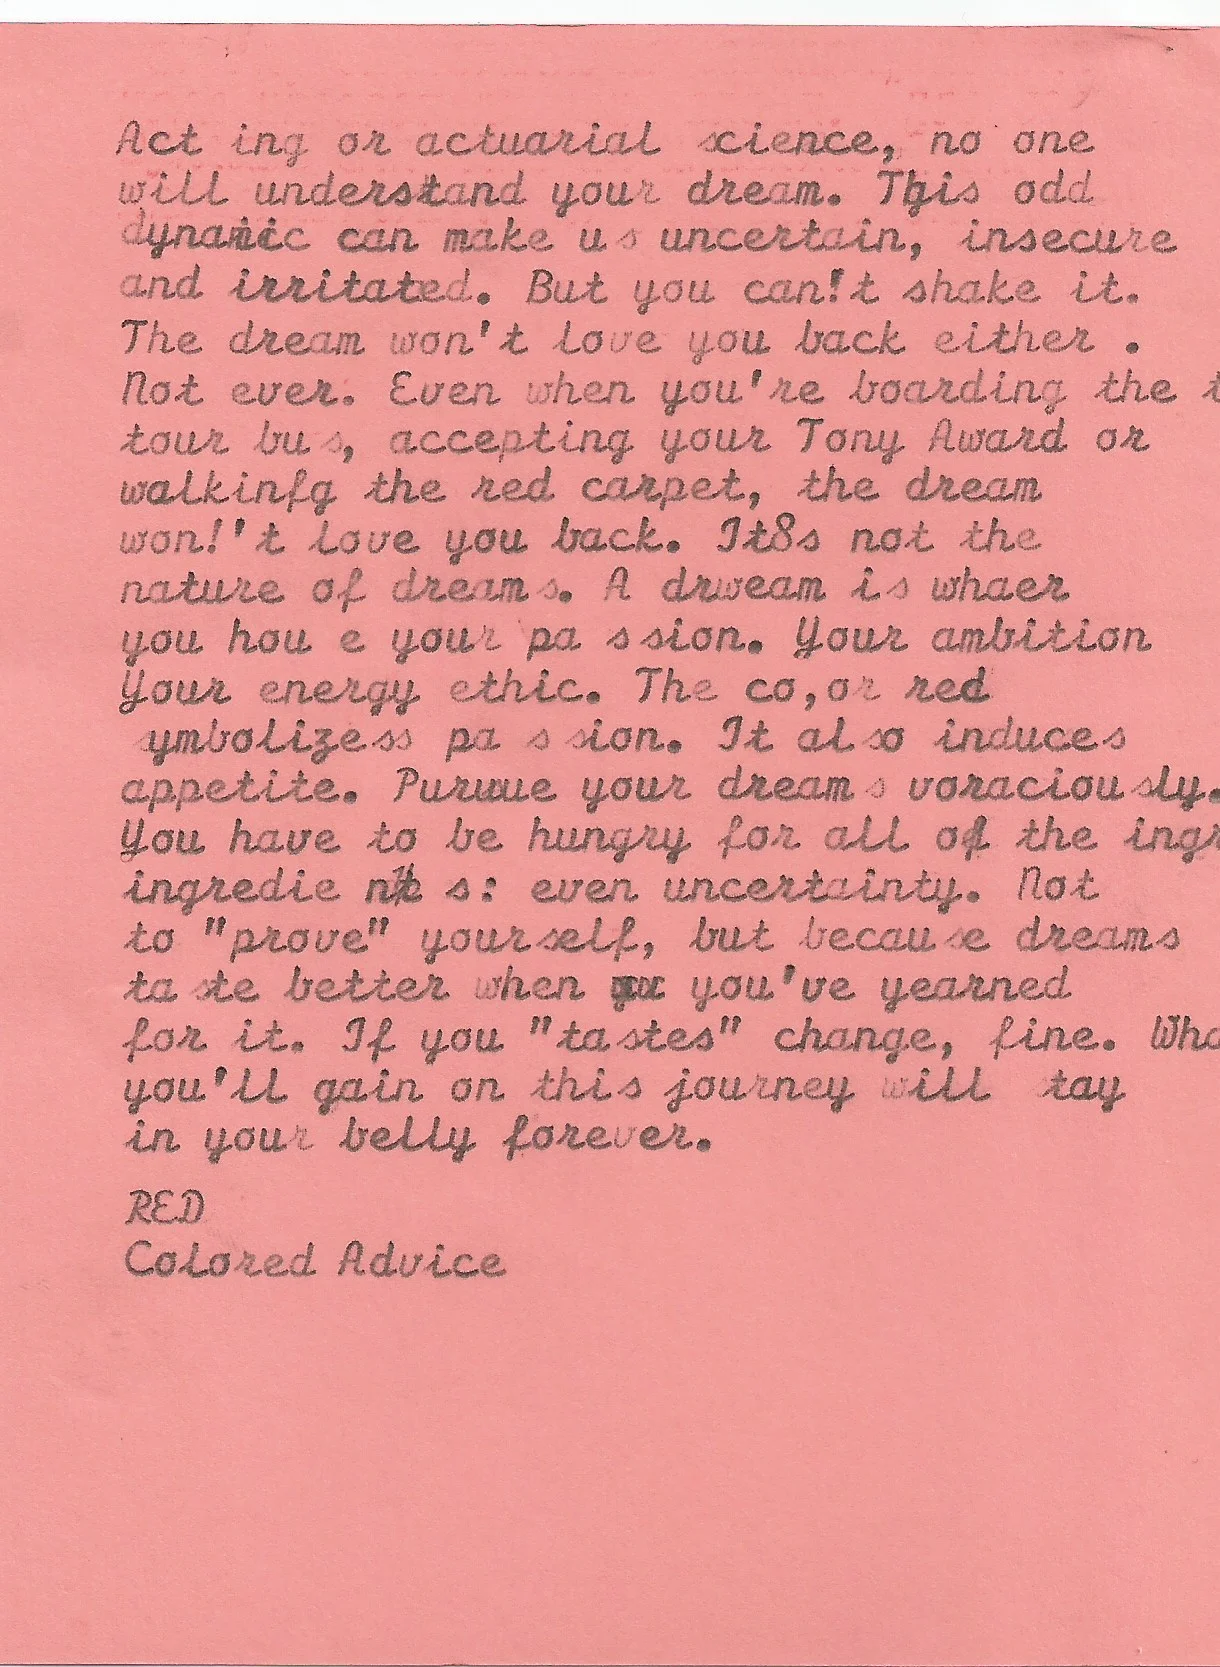 Act ing or actuarial science, no one
will understand your dream. This odd
dynamic can make us uncertain, insecure
and irritated. But you can!t shake it.
The dream won't love you back either .
Not ever. Even when you're boarding the t
tour bus, accepting your Tony Award or
walkinfg the red carpet, the dream
won!'t love you back. It8s not the
nature of dreams. A drweam is whaer
you hou e your pa ssion. Your ambition
Your energy ethic. The co,or red
ymbolizess pa ssion. It also induces
appetite. Puruue your dreams voraciously.
You have to be hungry for all of the ingr
ingredie nt s: even uncertainty. Not
to "prove" yourself, but because dreams
ta ste better when you've yearned
for it. If you "tastes" change, fine. Wha
you'll gain on this journey will tay
in your belly forever.
RED
Colored Advice